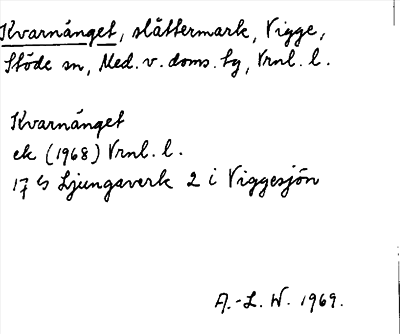 Kvarnänget, slåttermark, Vigge,
Stöde sn, Med. v. doms. tg, Vrnl. l.
Kvarnänget
ek (1968) Vrnl. l.
17 G Ljungaverk 2 i Viggesjön
A.-L. W. 1969.